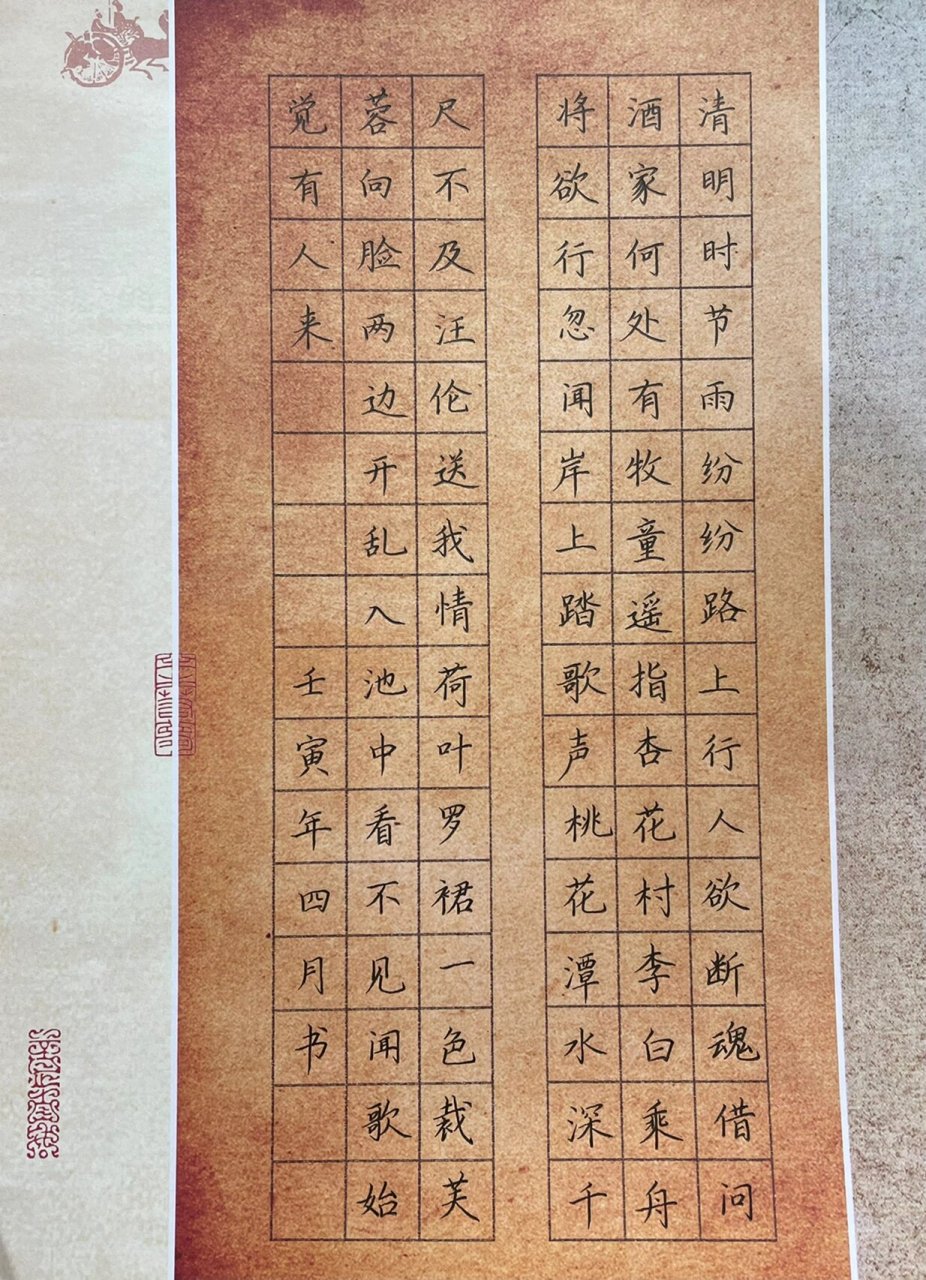 清明时节雨纷纷路上行人欲断魂借问
酒家何处有牧童遥指杏花村李白乘舟
将欲行忽闻岸上踏歌声桃花潭水深千
尺不及汪伦送我情荷叶罗裙一色裁芙
蓉向脸两边开乱入池中看不见闻歌始
觉有人来
壬寅年四月书